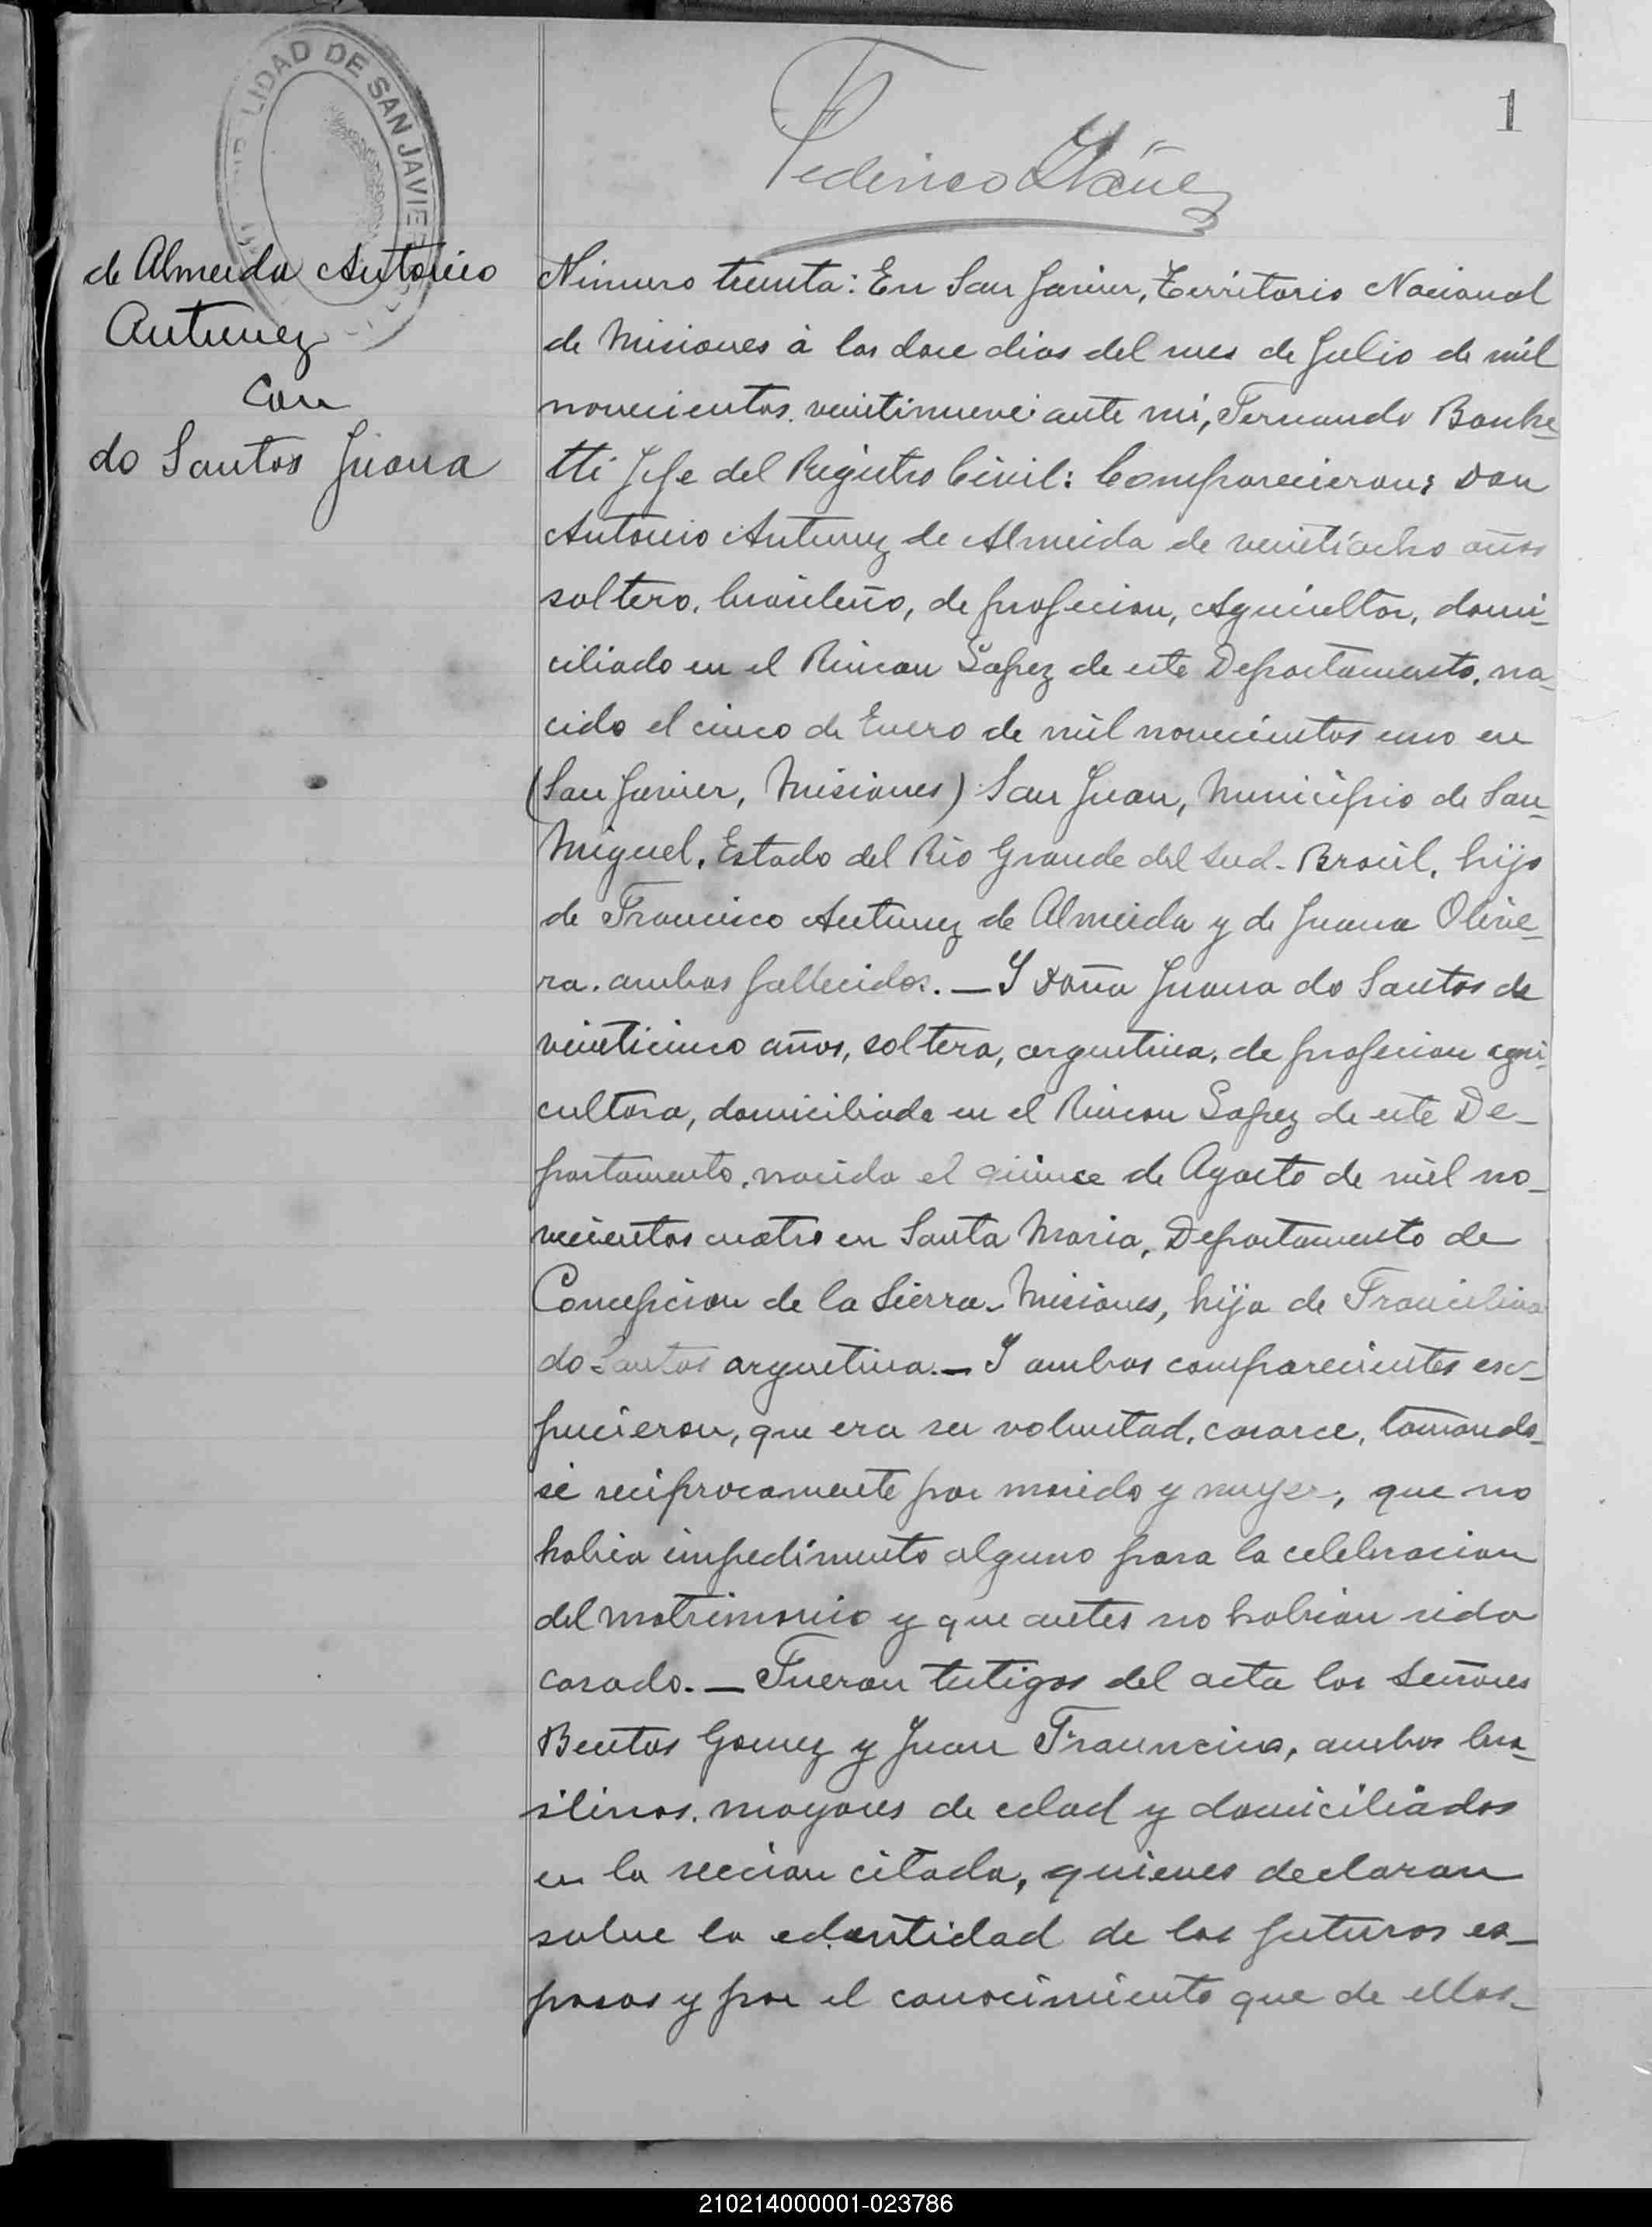 LIDAD DE SAN JAVIER
1
Federico Yáñez
de Almeida Antonio
Antunez
con
do Santos Juana
Número treinta: En San Javier, Territorio Nacional
de Misiones á los doce dias del mes de Julio de mil
novecientos veintinueve: ante mi, Fernando Banke
tti Jefe del Registro Civil: Comparecieron: Don
Antonio Antunez de Almeida de veintiocho años
soltero, brasileño, de profecion, Agricultor, domi-
ciliado en el Rincon Lopez de este Departamento, na-
cido el cinco de Enero de mil novecientos uno en
(San Javier, Misiones) San Juan, Municipio de San-
Miguel, Estado del Rio Grande del Sud-Brasil, hijo
de Francisco Antunez de Almeida y de Juana Olive-
ra, ambos fallecidos.— Y Doña Juana do Santos de
veinticinco años, soltera, argentina, de profecion agri-
cultora, domiciliada en el Rincon Lopez de este De-
partamento, nacida el quince de Agosto de mil no-
vecientos cuatro en Santa Maria, Departamento de
Concepcion de la Sierra-Misiones, hija de Francilina
do Santos argentina.— Y ambos comparecientes exs-
pucieron, que era su voluntad, casarce, tomando-
se reciprocamente por marido y mujer, que no
habia impedimento alguno para la celebracion
del matrimonio y que antes no habian sido
casado.— Fueron testigos del acta los Señores
Bentos Gomez y Juan, ambos bra-
silinos, mayores de edad y domiciliados
en la seccion citada, quienes declaran
sobre la edentidad de los futuros es-
posos y por el conocimiento que de ellos-
210214000001-023786